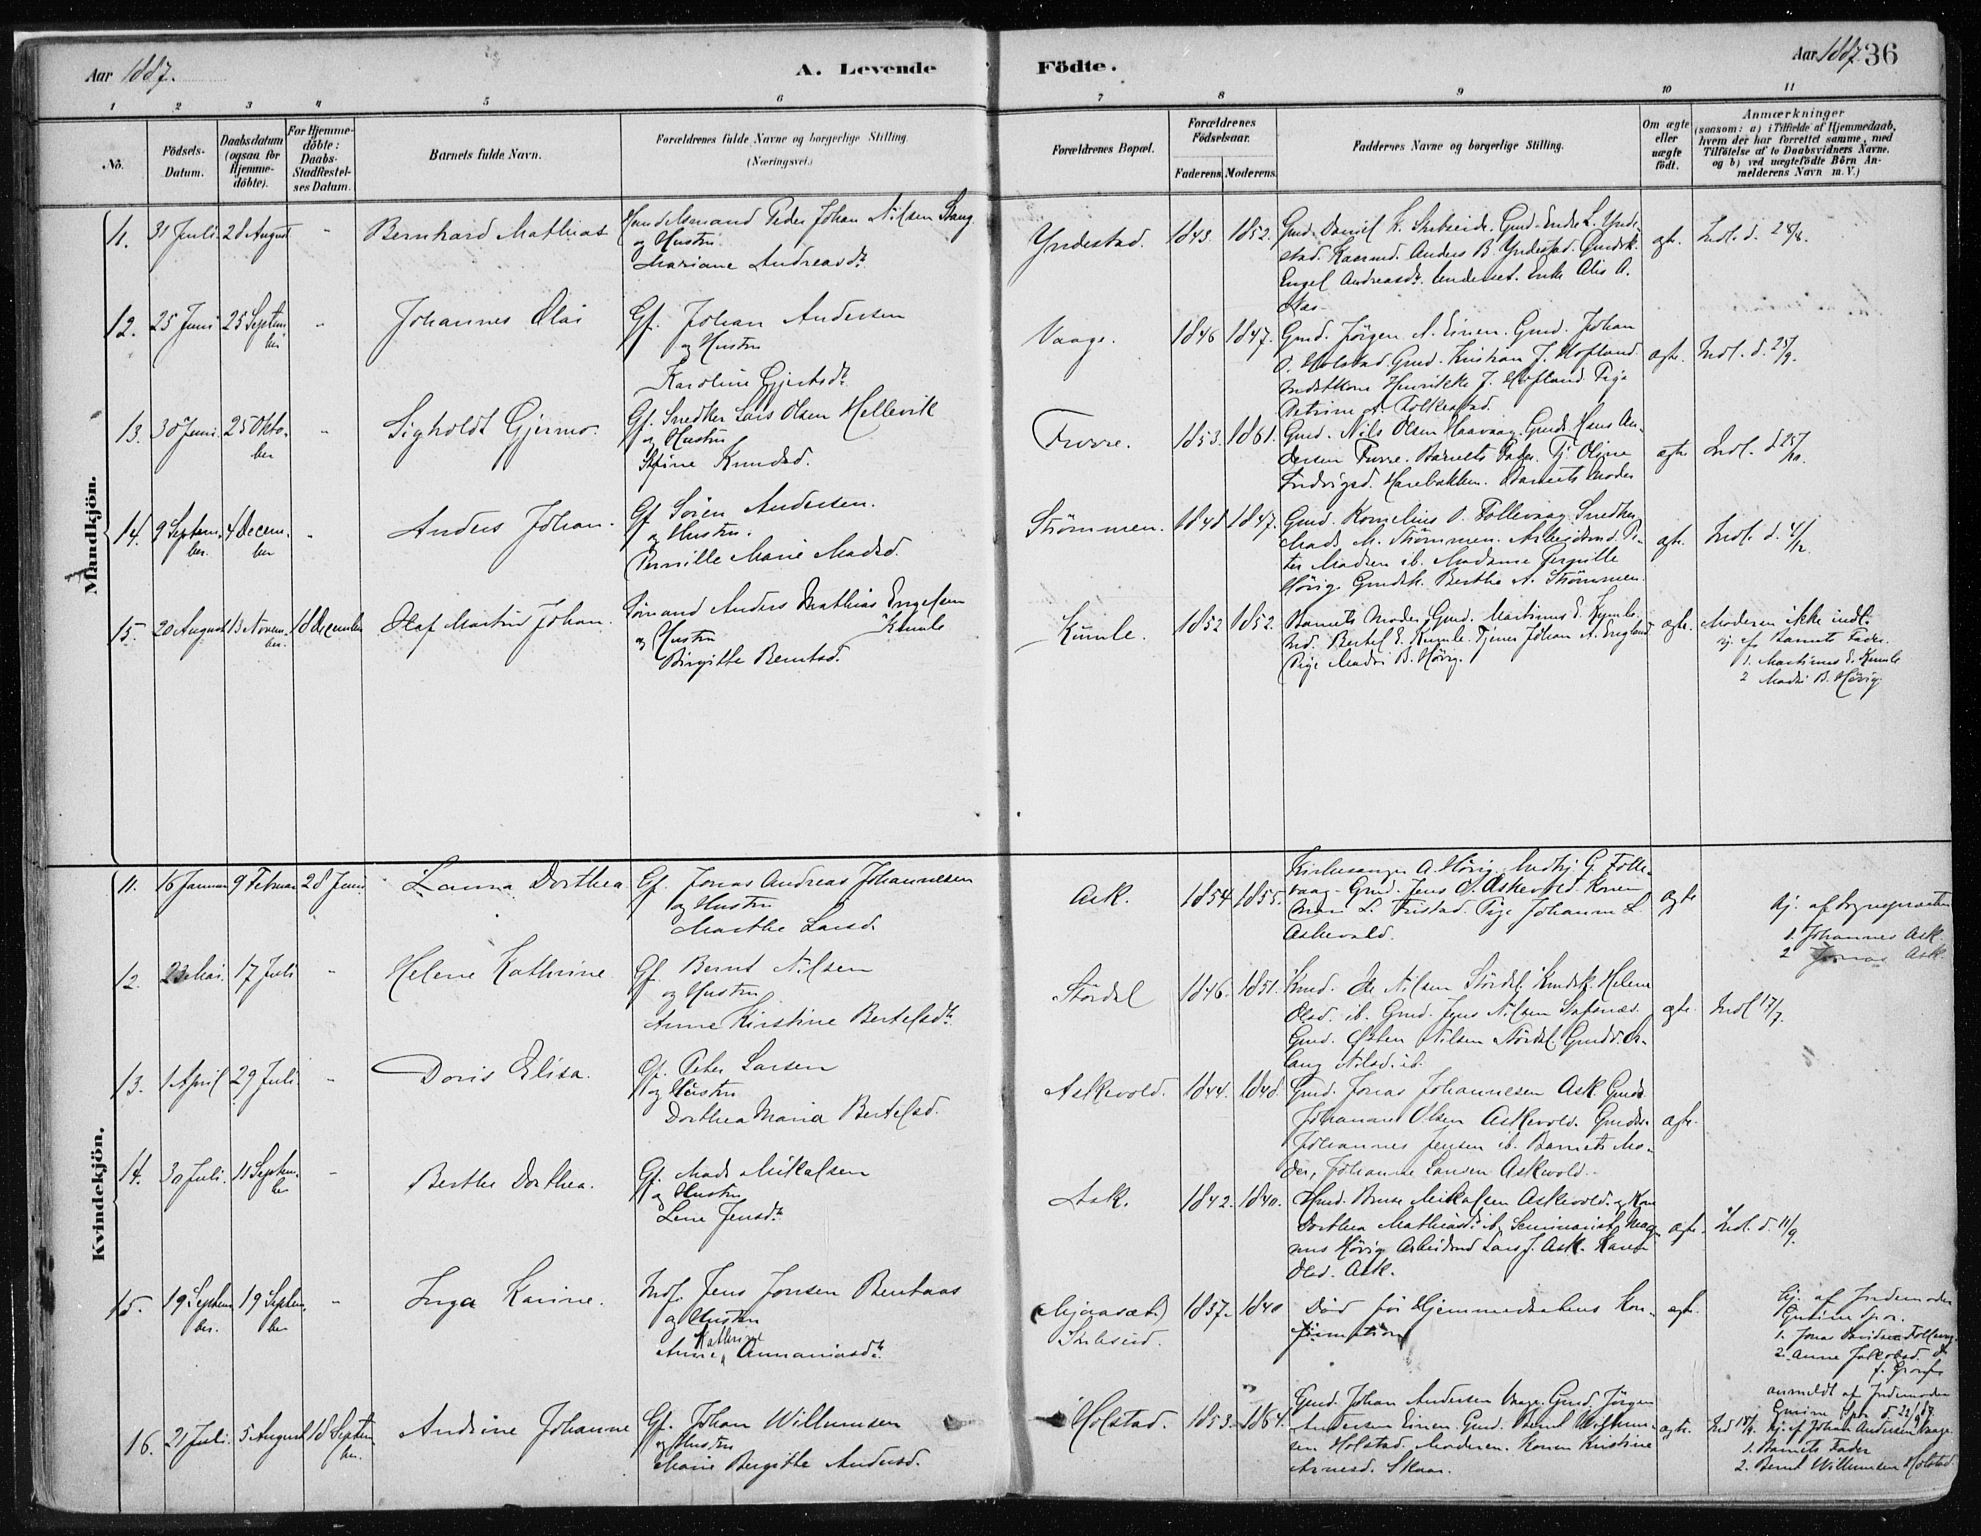 Aar 1887.
A. Levende Födte.
Aar 1887 36
1 2 3 4 5 6 7 8 9 10 11
No.
Födsels-
Datum.
Daabsdatum
(ogsaa for
Hjemme-
döbte).
For Hjemme-
döbte:
Daabs-
Stadfestel-
ses Datum.
Barnets fulde Navn.
Forældrenes fulde Navne og borgerlige Stilling
(Næringsvei.)
Forældrenes Bopæl.
Forældrenes
Födselsaar.
Faderens. Moderens.
Faddernes Navne og borgerlige Stilling.
Om ægte
eller
uægte
födt.
Anmærkninger
(saasom: a) i Tilfælde af Hjemmedaab,
hvem der har forrettet samme, med
Tilföielse af to Daabsvidners Navne,
og b) ved uægtefödte Börn An-
melderens Navn m. V.)
Mandkjön.
11. 31 Juli. 28 August " Bernhard Mathias
Handelsmand Peder Johan Nilsen Stang
og Hustru
Mariane Andreasdt.
Yndestad. 1843. 1852.
Gmd. Daniel L. Skibenide. Gmd. Endre L. Ynde-
stad. Kaarmd. Anders B. Yndestad. Gmdsk.
Engel Andreasdt. Indeset. Enke Alis A.
Aas.
ægte. Indl. d. 28/8.
12. 25 Juni 25 Septem-
ber " Johannes Olai
Gf. Johan Andersen
og Hustru
Karoline Gjertsdt.
Vaage. 1846 1847.
Gmd. Jörgen A. Einen. Gmd. Johan
O. Holstad. Gmd. Kristian J. Hofland.
Henrikke J. Hofland. Pige
Petrine A. Folkestad.
ægte. Indl. d. 25/9.
13. 30 Juni. 25 Okto-
ber " Sigholdt Gjermo.
Gf. Snedker Lars Olsen Hellevik
og Hustru
Knudsd.
Furre. 1853. 1861.
Gmd. Nils Olsen Haavaag. Gmd. Hans An-
dersen Furre. Barnets Fader. Tj. Oline
Ludvigsd. Harebakken. Barnets Moder
ægte Indl. d. 25/10.
14. 9 Septem-
ber. 4 Decem-
ber " Anders Johan.
Gf. Sören Andersen.
og Hustru.
Pernille Marie Madsd.
Strömmen. 1848 1847.
Gmd. Kornelius O. Follevaag. Snedker
Mads M. Strömmen. Arbeidsmd. Pe-
ter Madsen ib. Madame Pernille
Hövig. Gmdsk. Berthe A. Strömmen.
ægte. Indl. d. 4/12.
15. 20 August 13 Novem-
ber. 18 December Olaf Martin Johan.
Anders Mathias Engelsen
Kumle
og Hustru
Birgitte Berntsd.
Kumle. 1852 1852.
Barnets Moder. Gmd. Martinus E. Kumle.
Md. Bertel E. Kumle. Tjener Johan A. England.
Pige Madsi B. Hövig.
ægte. Moderen ikke indl.
Hj. af Barnets Fader.
1. Martinus E. Kumle
2 Madsi B. Hövig.
Kvindekjön.
11. 16 Januar 9 Februar 28 Juni Laura Dorthea
Gf. Jonas Andreas Johannesen
og Hustru
Marthe Larsd.
Ask. 1854. 1855.
Kirkesanger A. Hövig. G. Folle-
vaag. Gmd. Jens O. Askevold. Konen
Mari L. Fristad. Pige Johanne L.
Askevold.
ægte Hj. af Sognepræsten
1. Johannes Ask
2 Jonas Ask.
12. 23 Mai. 17 Juli " Helene Kathrine.
Gf. Bernt Nilsen
og Hustru
Anne Kirstine Bertelsdt.
Stördal 1846. 1851.
Gmd. Ole Nilsen Stördal. Gmdsk. Helene
Olsd. ib. Gmd. Jens Nilsen Stafsnæs.
Gmd. Östen Nilsen Stördal. Gmdd. Ar-
laug Nilsd. ib.
ægte. Indl 17/7.
13. 1 April 29 Juli. " Doris Elisa.
Gf. Peter Larsen
og Hustru
Dorthea Maria Bertelsd.
Askevold. 1844. 1848.
Gmd. Jonas Johannesen Ask. Gmds.
Johannes Olsen Askevold. Gmds.
Johannes Jensen ib. Barnets Mo-
der, Johanne Larsen Askevold.
ægte.
14. 30 Juli. 11 Septem-
ber " Berthe Dorthea.
Gf. Mads Mikalsen
og Hustru
Lene Jensdt.
Ask. 1842. 1840.
Gmd. Mikalsen Askevold. og Kone
Dorthea Mathiasdt. ib. Seminarist Mag-
nus Hövig. Arbeidsmd Lars J. Ask. Karen
Olsd. Ask.
ægte. Indl. d. 11/9.
15. 19 Septem-
ber. 19 Septem-
ber " Inga Karine.
Indf. Jens Jonsen Bentaas
og Hustru
Kathrine
Anne Ananiasdt.
1837. 1840
Död för Hjemmedaabens Kon-
firmation
ægte. Hj. af Jordemoder
1. Jonas Davidsen Follevaag.
2. Anne Jakobsd.
anmeldt af Jordemoder
16. 21 Juli. 5 August 18 Septem-
ber. Andrine Johanne
Gf. Johan Willumsen
og Hustru
Marie Bergitte Andersd.
Holstad. 1853. 1864.
Gmd. Johan Andersen Vaage. Gmd. Jörgen
Andersen Einen. Gmd. Bernt Willum-
sen Holstad. Moderen. Konen Kristine
Arnesd. Skaar.
ægte. Ind 18/9. Hj. af Johan Andersen Vaage.
1. Barnets Fader
2. Bernt Willumsen Holstad.